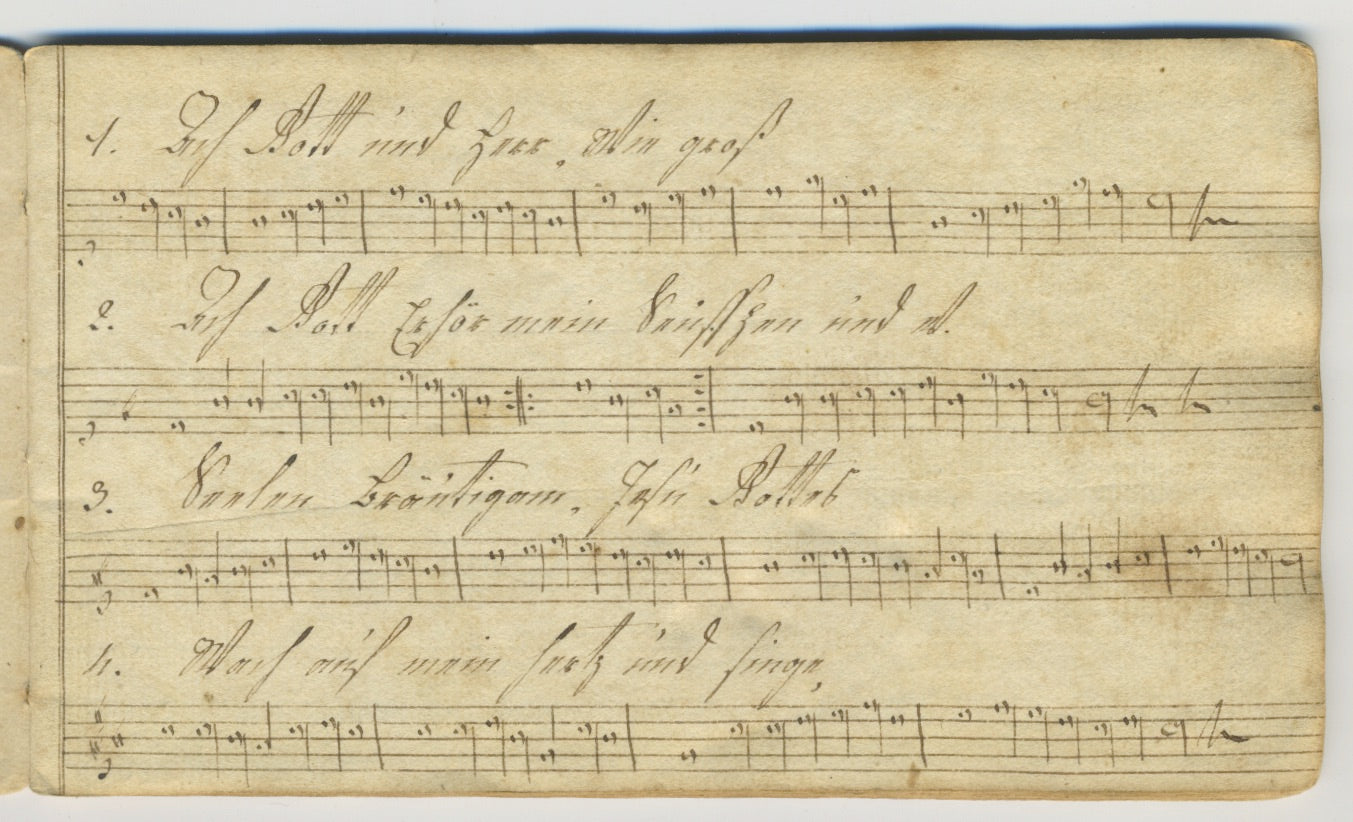 1. Ach Gott und Herr, Wie groß
2. Ach Gott Erhör mein Seufftzen und
3. Seelen Bräutigam, Jesu Gottes
4. Wach auf mein Hertz und singe,